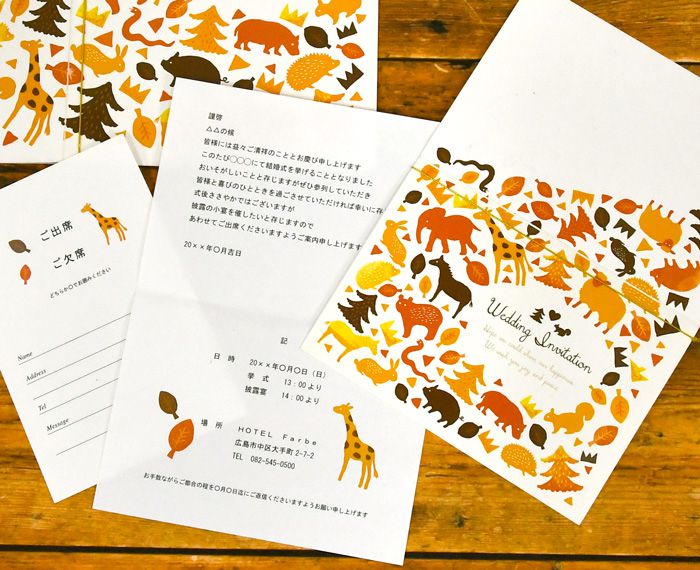 謹啓
△△の候
皆様には益々ご清祥のこととお慶び申し上げます
このたび〇〇〇にて結婚式を挙げることとなりました
おいそがしいことと存じますがぜひ参列していただき
皆様と喜びのひとときを過ごさせていただければ幸いに存
式後ささやかではございますが
披露の小宴を催したいと存じますので
あわせてご出席くださいますようご案内申し上げます
20××年〇月吉日
記
日 時 20××年〇月〇日（日）
挙 式 13：00より
披露宴 14：00より
場 所 HOTEL Farbe
広島市中区大手町2-7-2
TEL 082-545-0500
お手数ながらご都合の程を〇月〇日迄にご返信くださいますようお願い申し上げます
ご出席
ご欠席
どちらか〇でお囲みください
Name
Address
Tel
Message
Wedding Invitation
We wish you joy and peace.